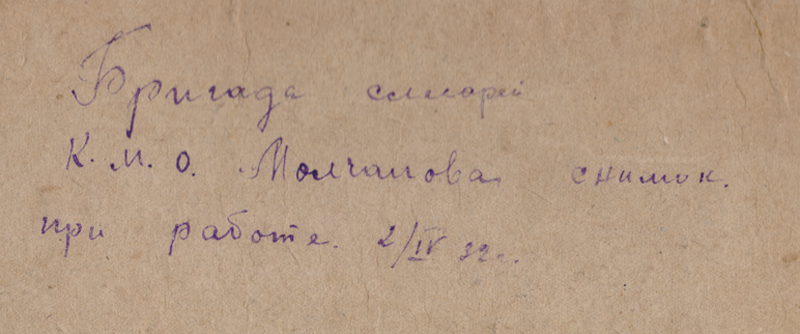 Бригада слесарей
К. М. О. Молчанова снимок.
при работе. 2/IV 32 г.